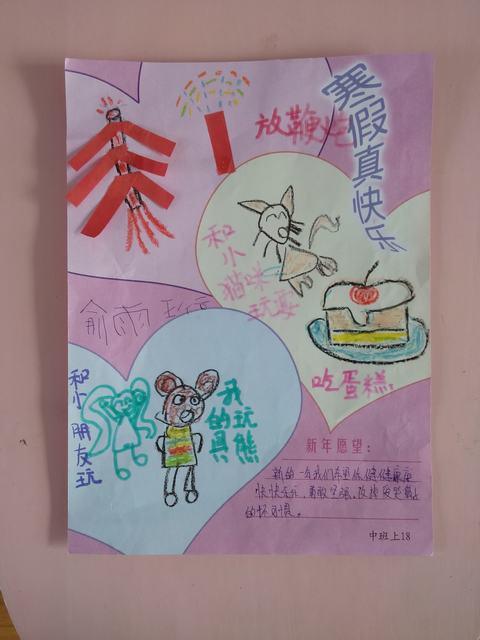 寒假真快乐
放鞭炮
和小猫咪玩耍
吃蛋糕
俞雨
和小朋友玩
我的玩具熊
新年愿望:
新的一年我们希望你健健康康
快快乐乐,勇敢坚强。改掉爱
的坏习惯。
中班上18